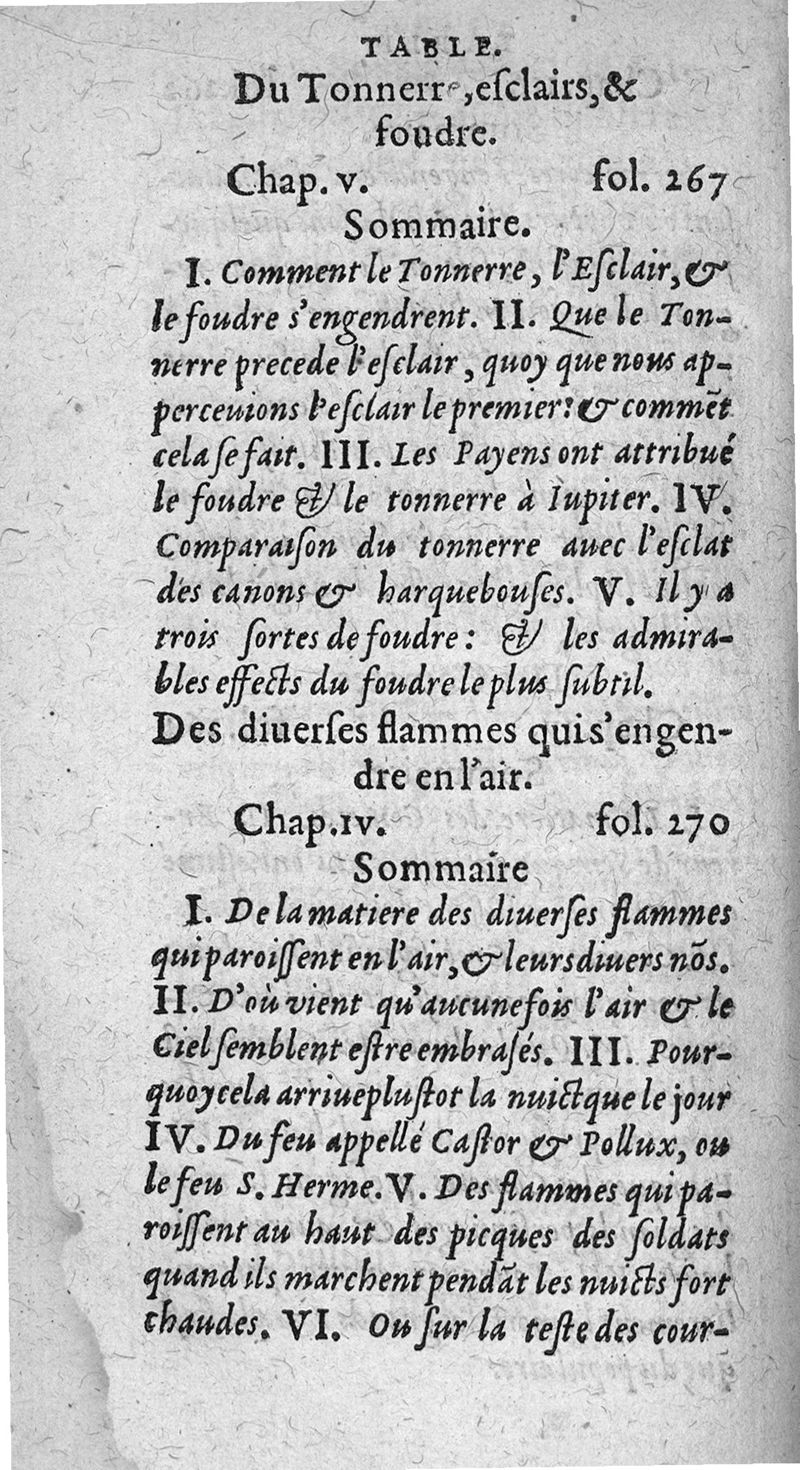 TABLE.
Du Tonnerre, eſclairs, &
foudre.
Chap. v. fol. 267
Sommaire.
I. Comment le Tonnerre, l'Eſclair, &
le foudre s'engendrent. II. Que le Ton-
nerre precede l'eſclair, quoy que nous ap-
perceuions l'eſclair le premier: & commēt
cela ſe fait. III. Les Payens ont attribué
le foudre & le tonnerre à Iupiter. IV.
Comparaiſon du tonnerre auec l'eſclat
des canons & harquebouſes. V. Il y a
trois ſortes de foudre: & les admira-
bles effects du foudre le plus ſubtil.
Des diuerſes flammes qui s'engen-
dre en l'air.
Chap. ıv. fol. 270
Sommaire
I. De la matiere des diuerſes flammes
qui paroiſſent en l'air, & leurs diuers nōs.
II. D'où vient qu'aucunefois l'air & le
Ciel ſemblent eſtre embraſés. III. Pour-
quoy cela arriue pluſtot la nuict que le jour
IV. Du feu appellé Caſtor & Pollux, ou
le feu S. Herme. V. Des flammes qui pa-
roiſſent au haut des picques des ſoldats
quand ils marchent pendāt les nuicts fort
chaudes. VI. Ou ſur la teſte des cour-